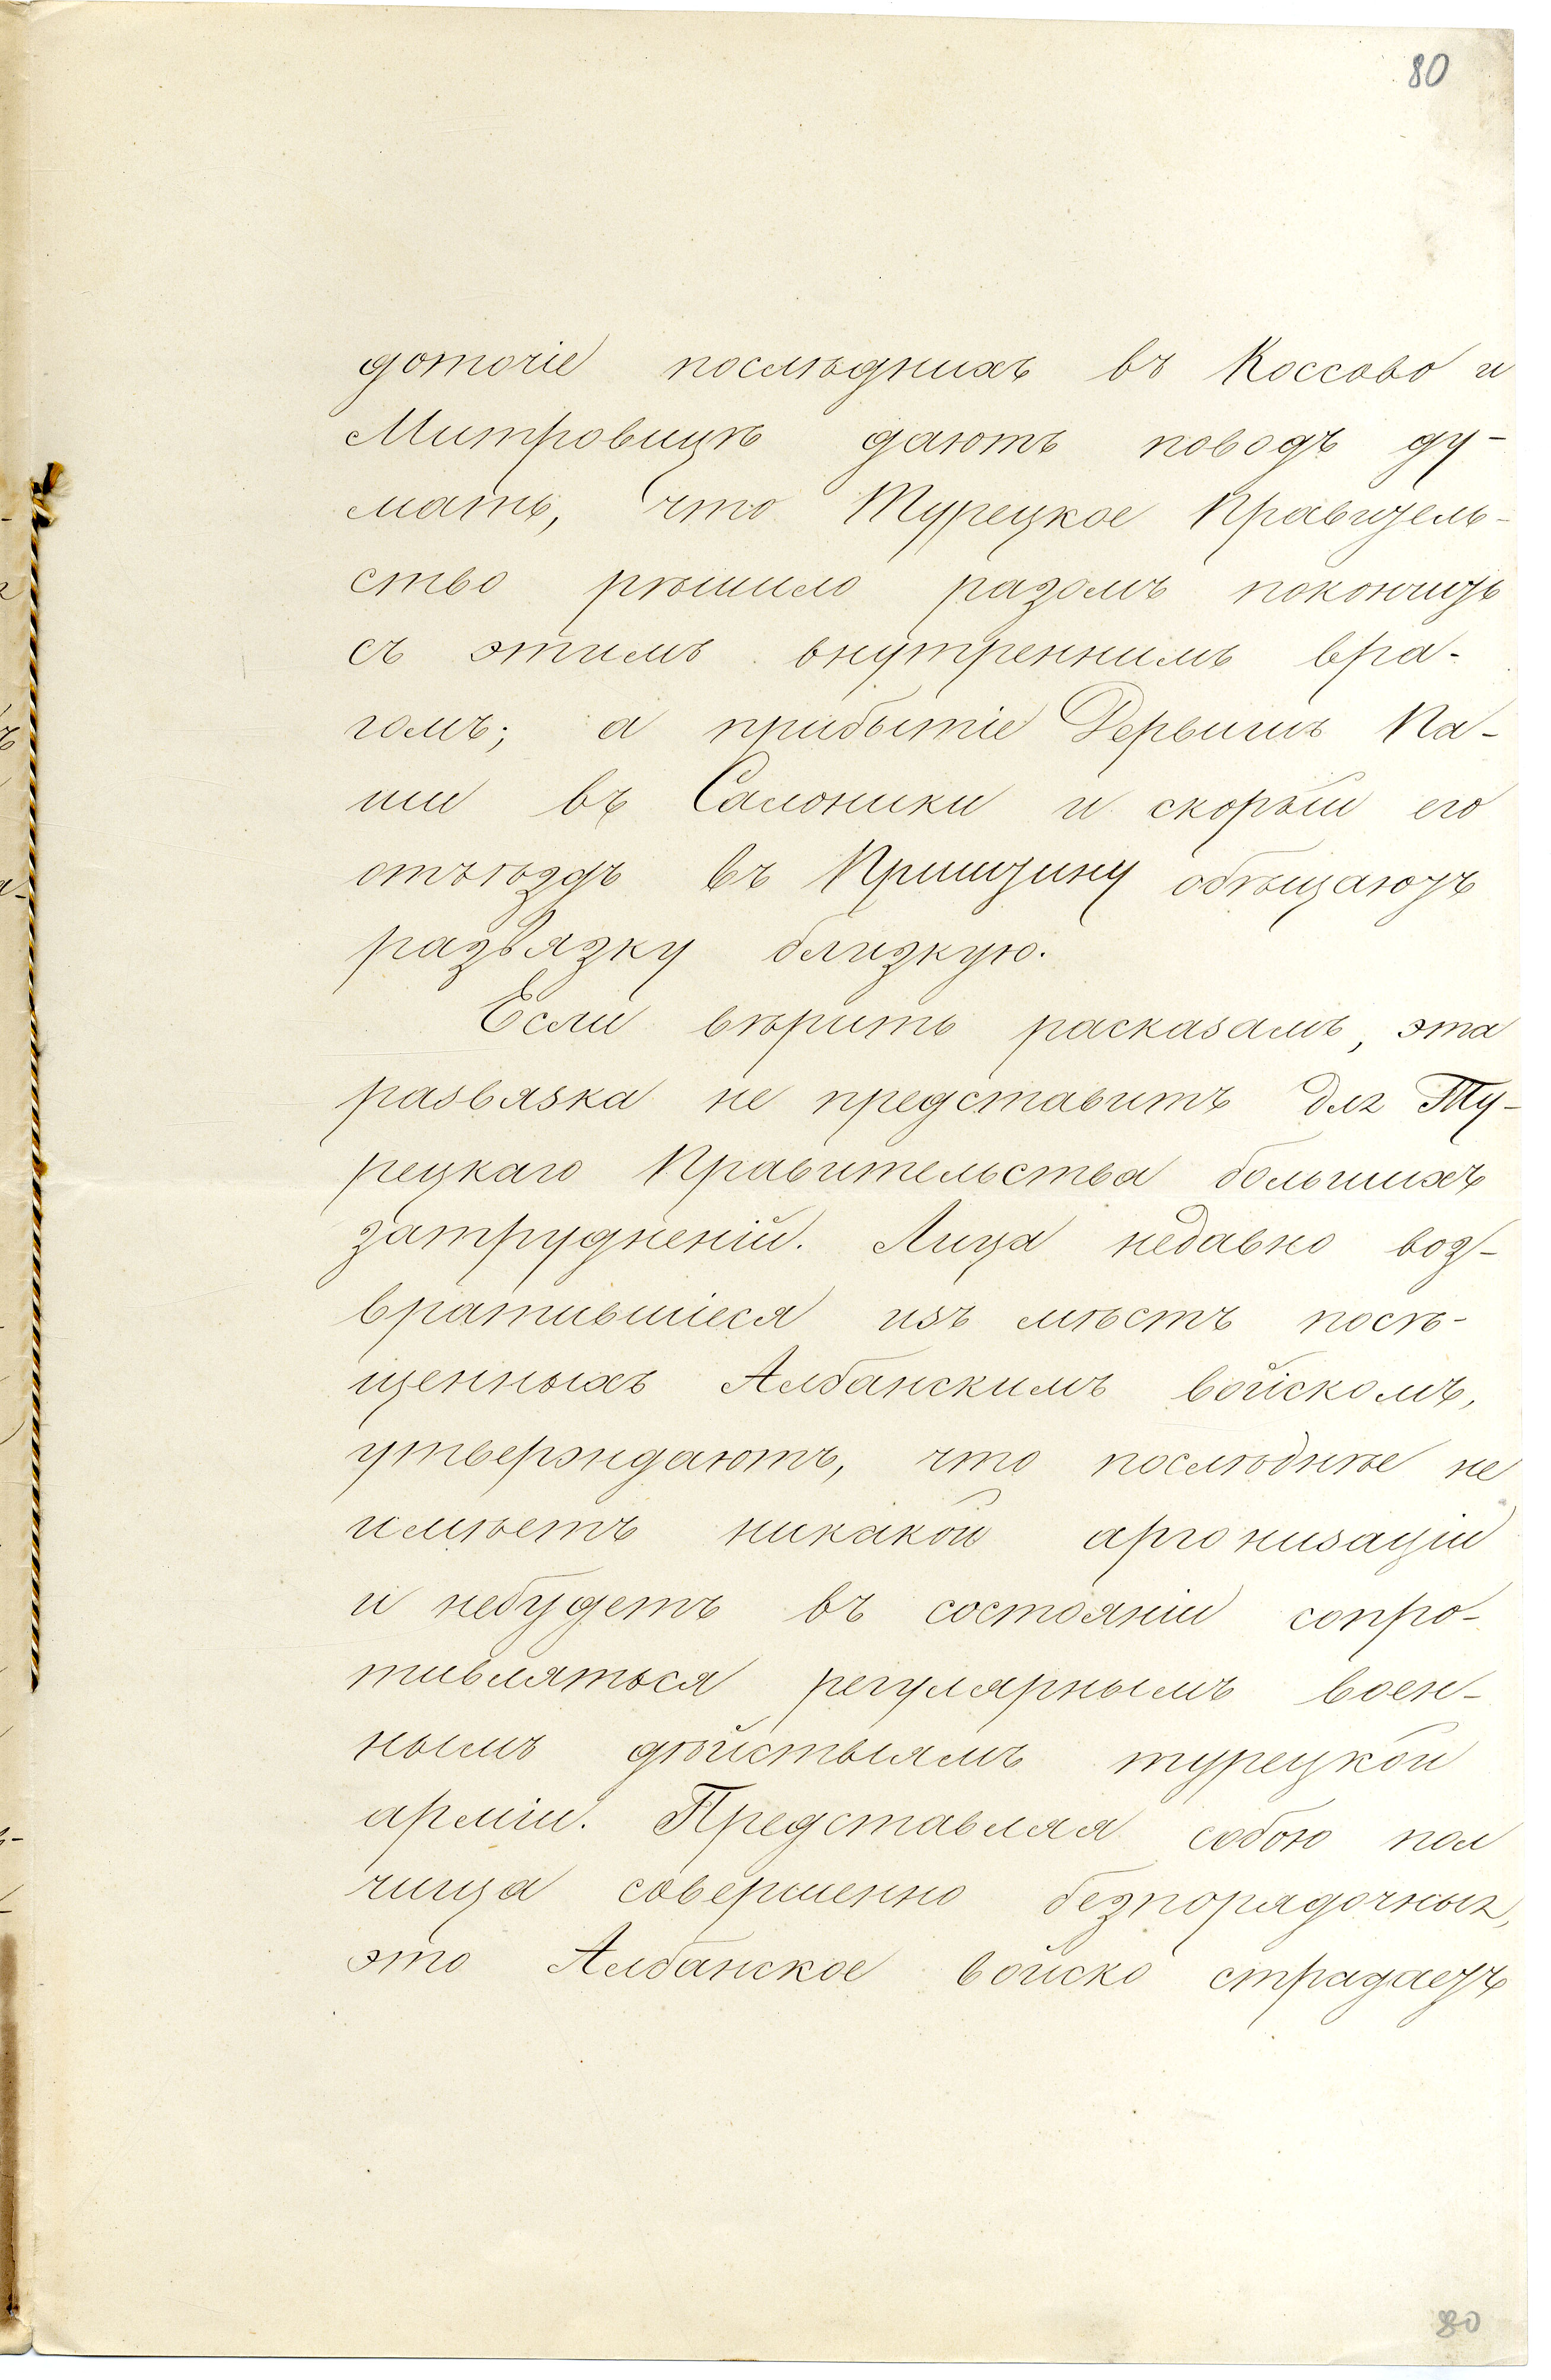 80
доточіе послѣднихъ въ Коссово и
Митровицѣ даютъ поводъ ду-
мать, что Турецкое Правитель-
ство рѣшило разомъ покончить
съ этимъ внутреннимъ вра-
гомъ; а прибытіе Дервишъ Па-
ши въ Салоники и скорый его
отъѣздъ въ Приштину обѣщаютъ
развязку близкую.
Если вѣрить расказамъ, эта
развязка не представитъ для Ту-
рецкаго Правительства большихъ
затрудненій. Лица недавно воз-
вратившіеся изъ мѣстъ посѣ-
щенныхъ Албанскимъ войскомъ,
утверждаютъ, что послѣднѣе не
имѣетъ никакой аргонизаціи
и небудетъ въ состояніи сопро-
тивляться регулярнымъ воен-
нымъ дѣйствіямъ турецкой
арміи. Представляя собою пол
чища совершенно безпорядочныя,
это Албанское войско страдаетъ
80